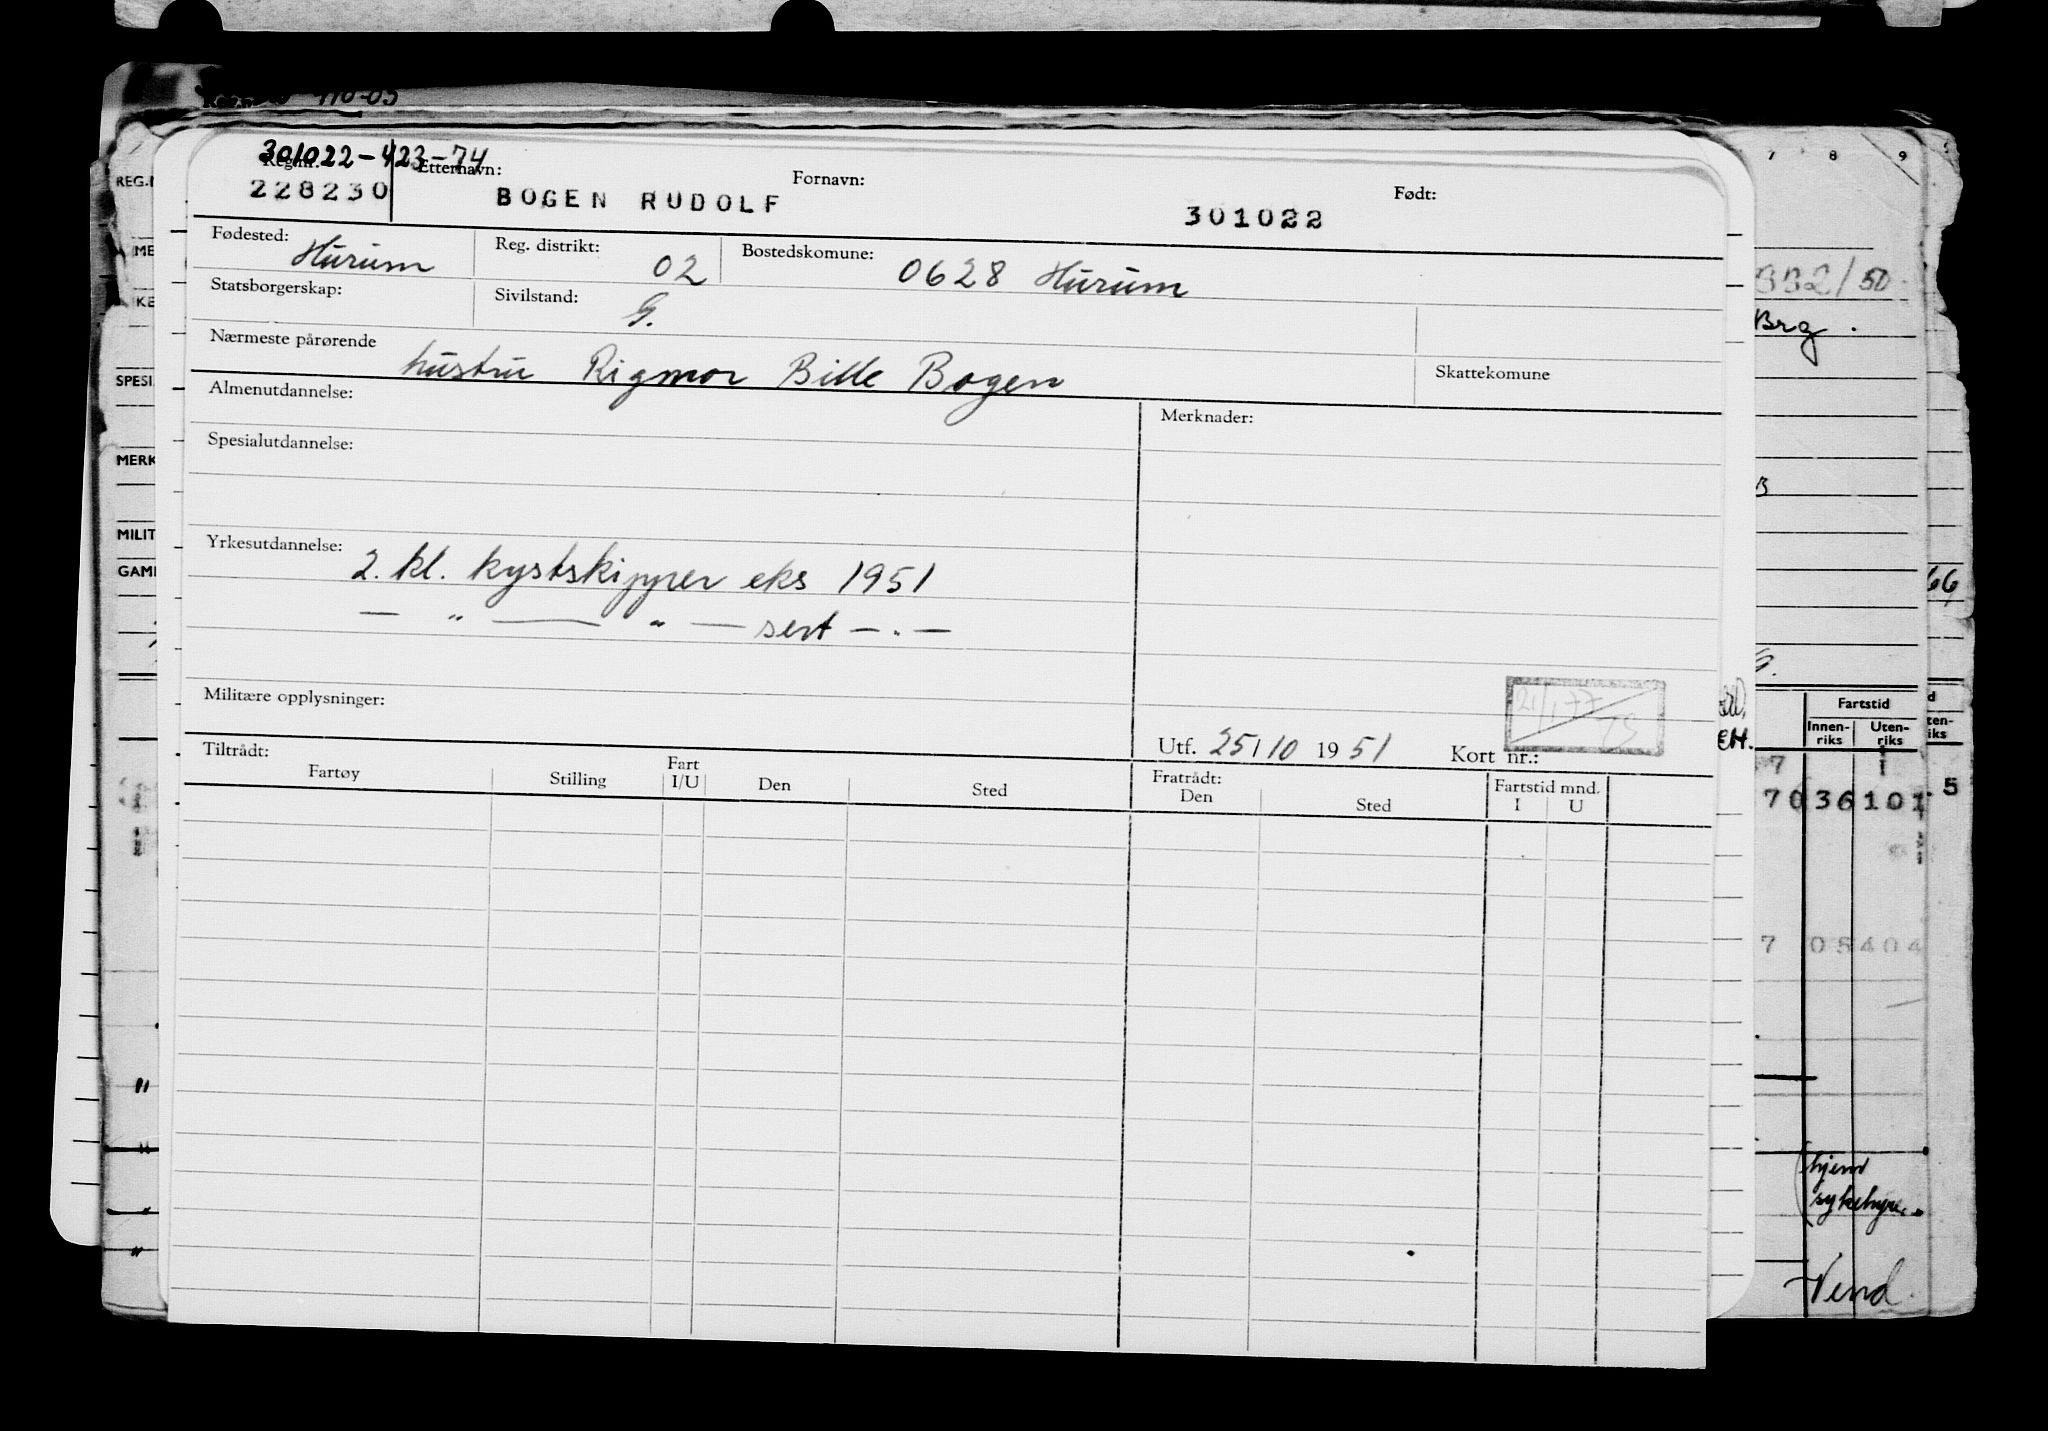 301022-423-74
Reg.nr.: Etternavn: Fornavn: Født:
228230 BOGEN RUDOLF 301022
Fødested: Hurum Reg. distrikt: 02 Bostedskomune: 0628 Hurum
Statsborgerskap: Sivilstand: G.
Nærmeste pårørende hustru Rigmor Bille Bogen Skattekomune
Almenutdannelse: Merknader:
Spesialutdannelse:
Yrkesutdannelse: 2. kl. kystskipper eks 1951
— " —— " — sert — " —
Militære opplysninger:
21/1 77 TS
Utf. 25/10 1951 Kort nr.:
Tiltrådt: Fratrådt:
Fartøy Stilling Fart I/U Den Sted Den Sted Fartstid mnd. I U
REG.
ME
KE
SPESI
MERK
MILIT
GAM
7 8 9
332/50
Brg.
66
Fartstid
Innen-riks Uten-riks
7 1
70 36 101 5
7 05 404
(hjem
sykehyre.
Vend.